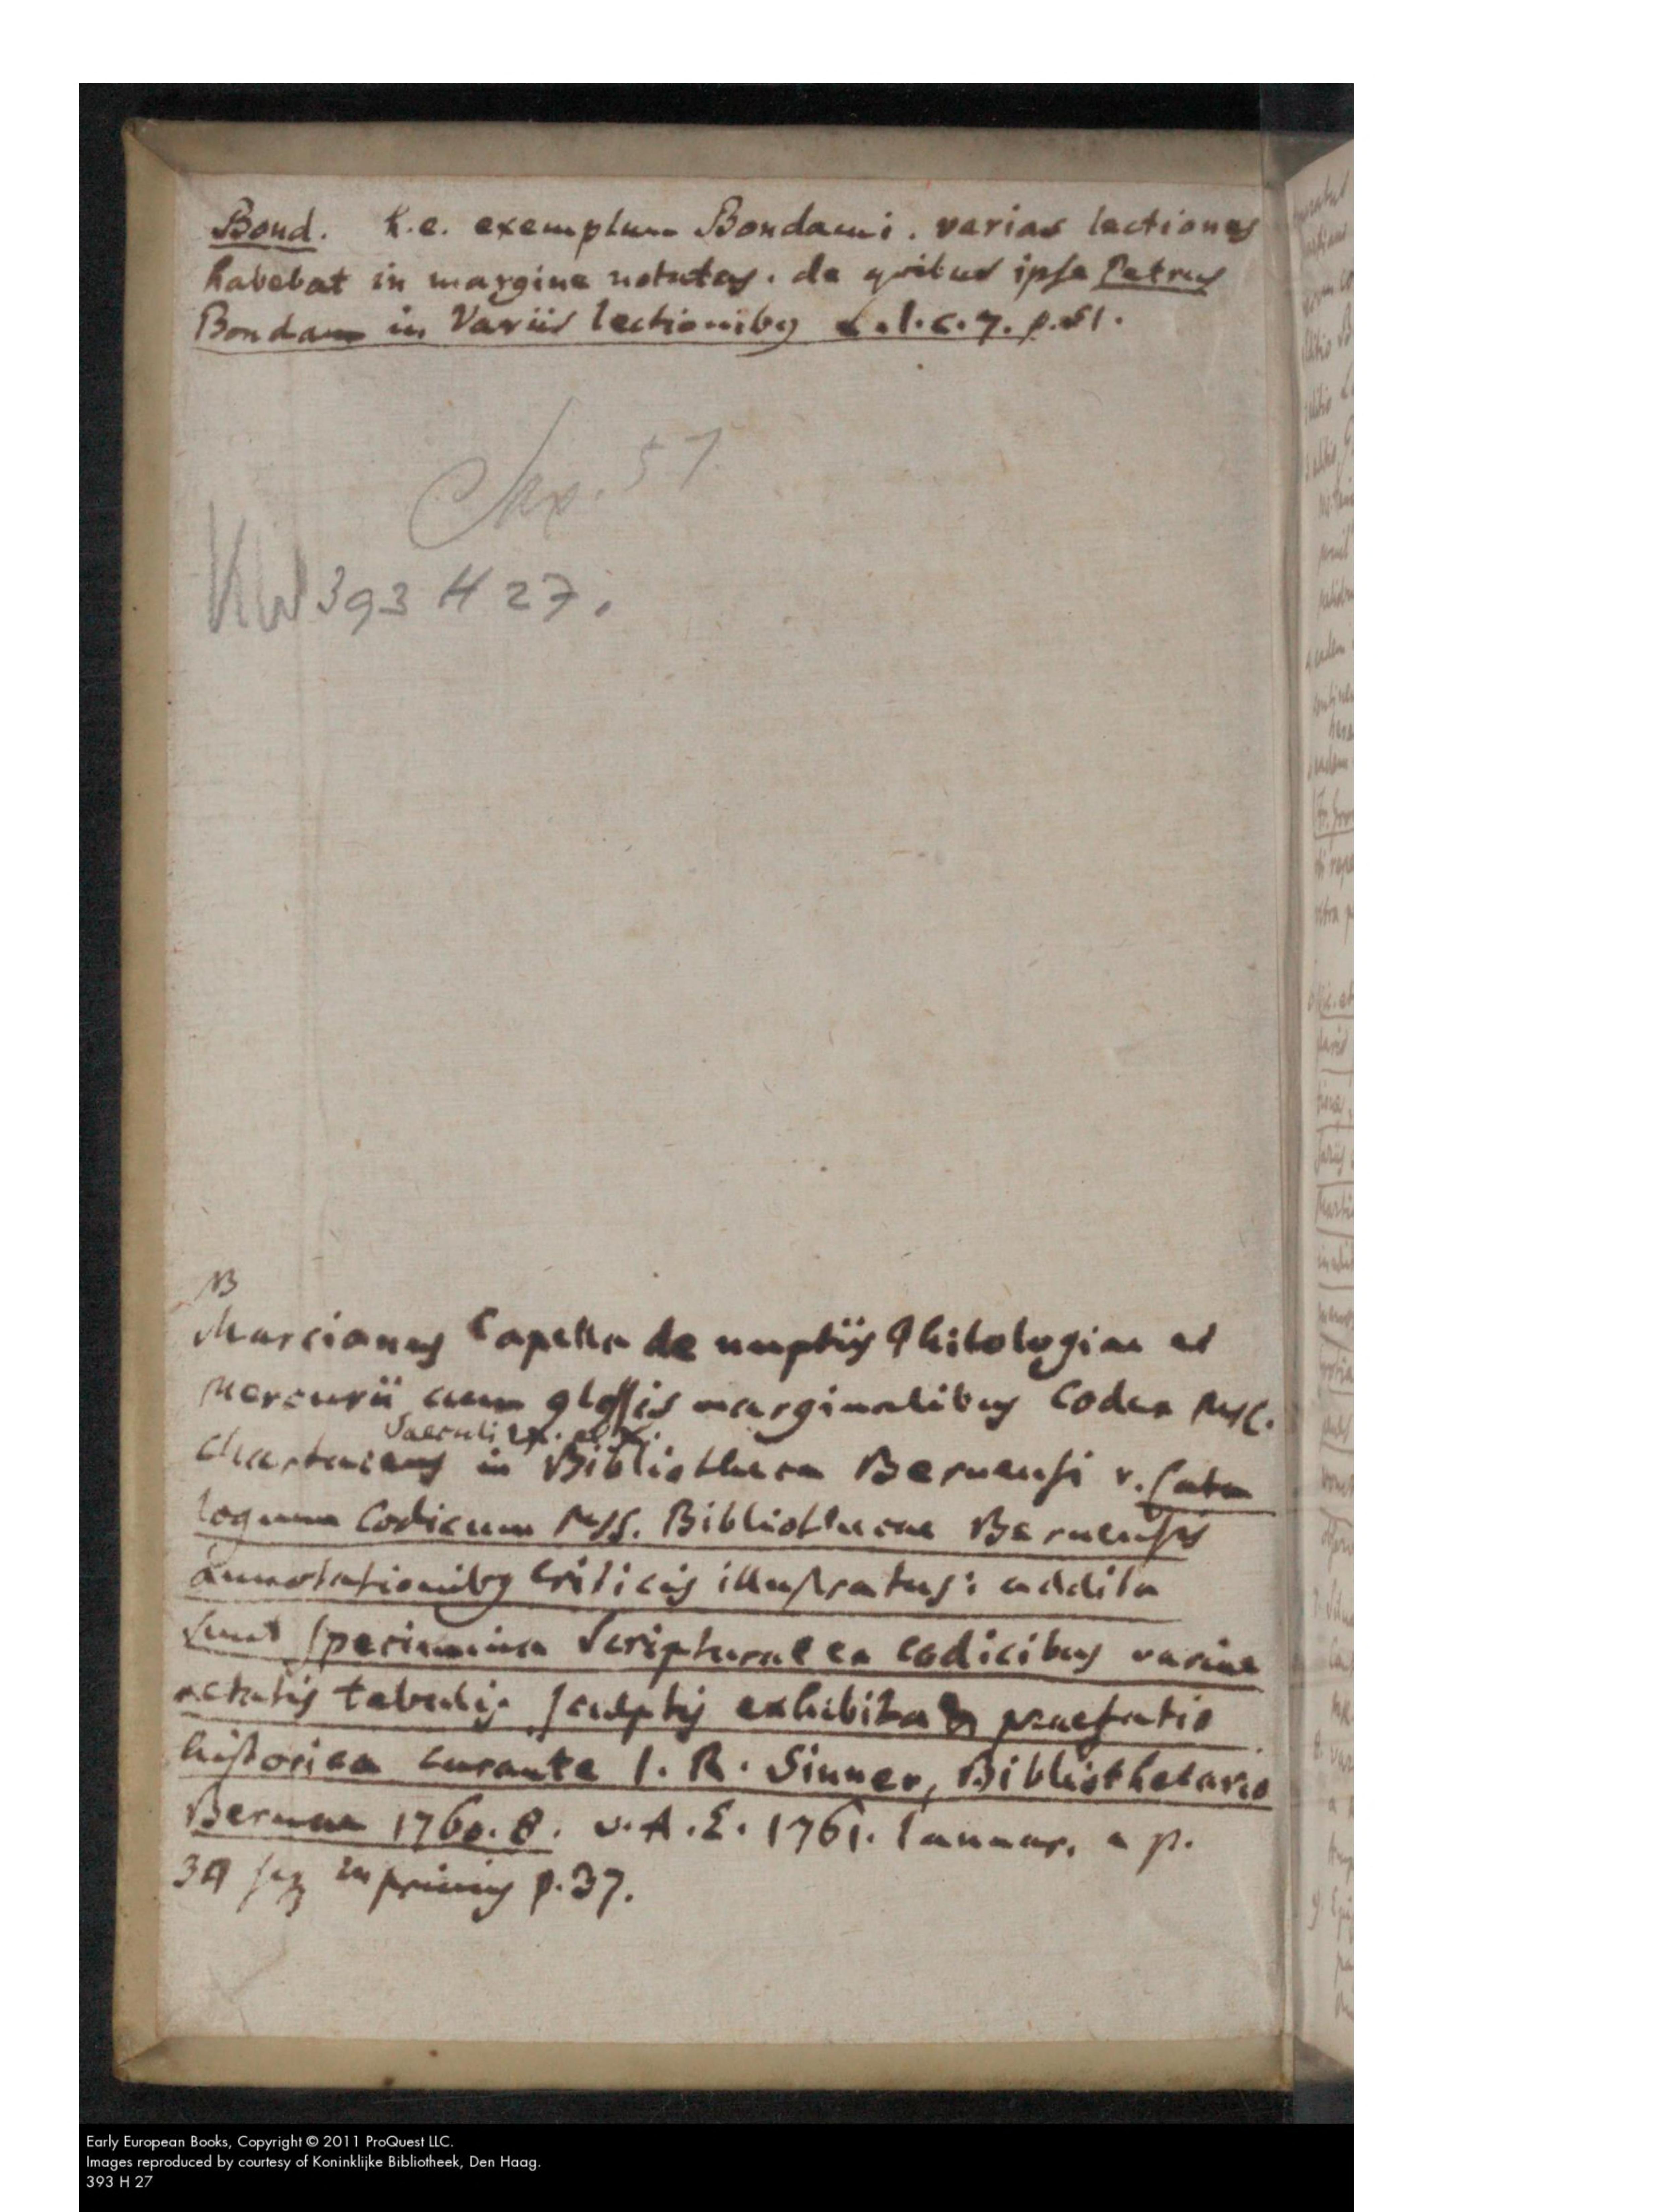 Bond. h.e. exemplum Bondami. varias lectiones
habebat in margine notatas. de quibus ipse Petrus
Bondam in Variis lectionibus L.1.c.7. p.51.
57
KW 393 H 27.
NB
Marcianus Capella de nuptiis Philologiae et
Mercurii cum glossis marginalibus Codex Msc.
Saeculi IX. et X.
chartaceus in Bibliotheca Bernensi v. Cata
logum Codicum Mss. Bibliothecae Bernensis
annotationibus criticis illustratus: addita
sunt specimina Scripturae ex codicibus variae
aetatis tabulis sculptis exhibita & praefatio
historica curante I. R. Sinner, Bibliothecario
Bernae 1760. 8. v. A. E. 1761. Ianuar. a p.
34 seq inprimis p. 37.
Early European Books, Copyright © 2011 ProQuest LLC.
Images reproduced by courtesy of Koninklijke Bibliotheek, Den Haag.
393 H 27